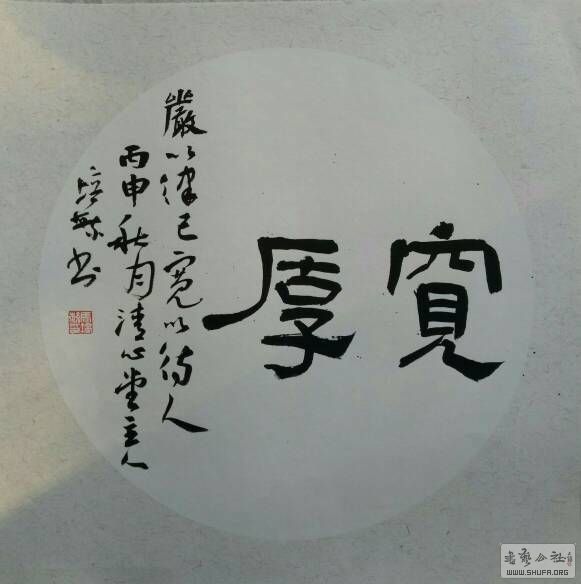 寬厚
嚴以律己寬以待人
丙申秋月清心堂主人
培书
书艺公社
WWW.SHUFA.ORG